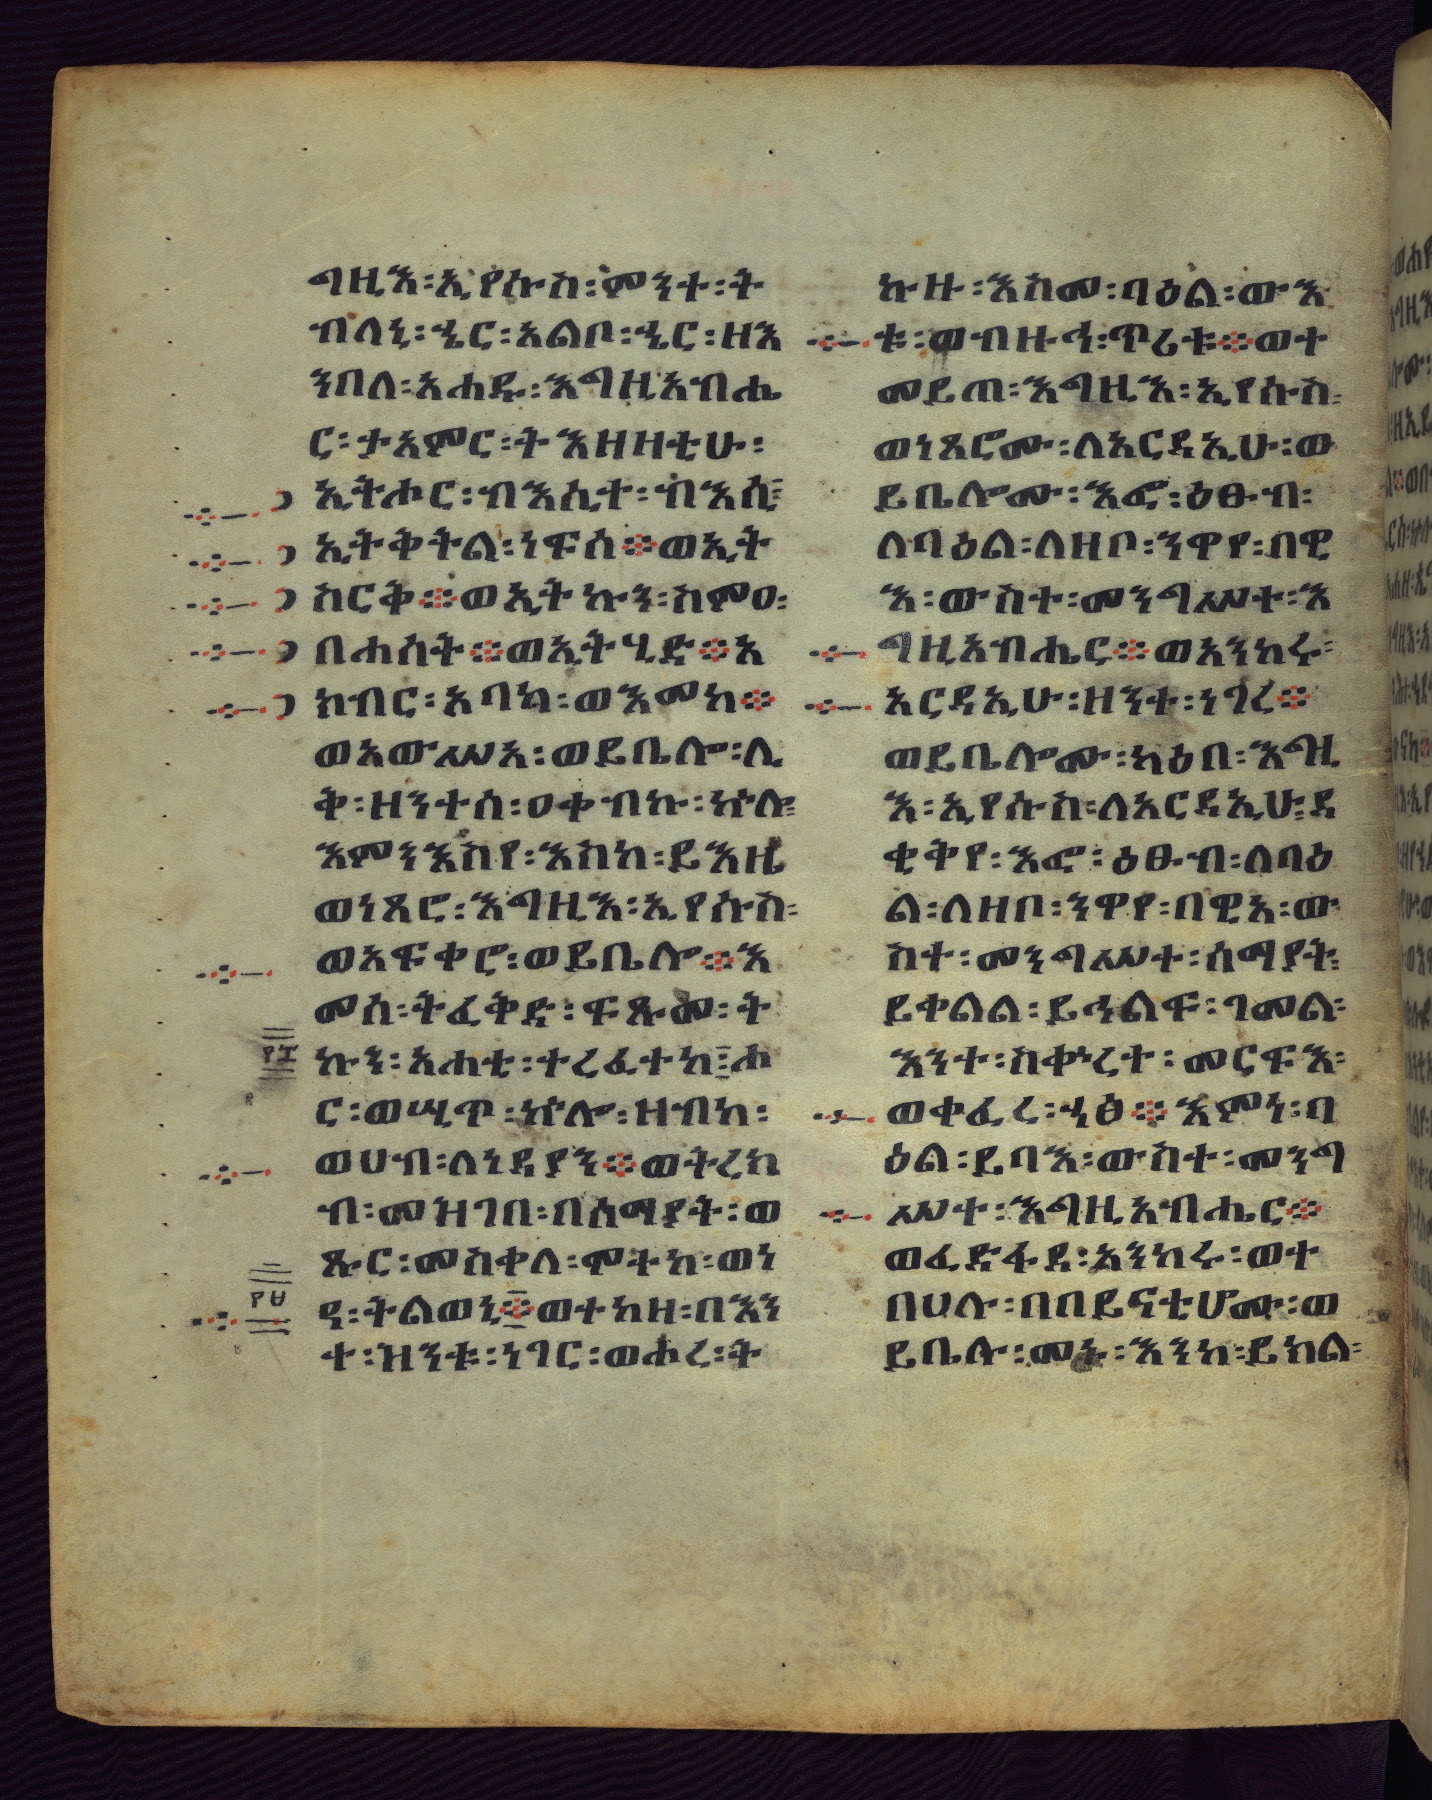 ግዚእ፡ኢየሱስ፡ምንተ፡ት
ብለኒ፡ኄር፡አልቦ፡ኄር፡ዘእ
ንበለ፡አሐዱ፡እግዚአብሔ
ር፡ታአምር፡ትእዘዛቲሁ፡
ኢትሑር፡ብእሲተ፡ብእሲ፡
ኢትቅትል፡ነፍሰ፨ወኢት
ስርቅ፨ወኢትኩን፡ስምዐ፡
በሐሰት፨ወኢትሂድ፨አ
ክብር፡አባከ፡ወእመከ፨
ወአውሥአ፡ወይቤሎ፡ሊ
ቅ፡ዘንተሰ፡ዐቀብኩ፡ኵሎ፡
እምንእስየ፡እስከ፡ይእዜ
ወነጸሮ፡እግዚእ፡ኢየሱስ፡
ወአፍቀሮ፡ወይቤሎ፨እ
መሰ፡ትፈቅድ፡ፍጹመ፡ት
ኩን፡አሐቲ፡ተረፈተከ፡ሐ
ር፡ወሢጥ፡ኵሎ፡ዘብከ፡
ወሀብ፡ለነዳያን፨ወትረክ
ብ፡መዝገበ፡በሰማያት፡ወ
ጹር፡መስቀለ፡ሞትከ፡ወነ
ዓ፡ትልወኒ፨ወተከዘ፡በእን
ተ፡ዝንቱ፡ነገር፡ወሖረ፡ት
ኩዙ፡እስመ፡ባዕል፡ውእ
ቱ፡ወብዙኅ፡ጥሪቱ፨ወተ
መይጠ፡እግዚእ፡ኢየሱስ፡
ወነጸሮሙ፡ለአርዳኢሁ፡ወ
ይቤሎሙ፡እፎ፡ዕፁብ፡
ለባዕል፡ለዘቦ፡ንዋየ፡በዊ
እ፡ውስተ፡መንግሥተ፡እ
ግዚአብሔር፨ወአንከሩ፡
አርዳኢሁ፡ዘንተ፡ነገረ፨
ወይቤሎሙ፡ካዕበ፡እግዚ
እ፡ኢየሱስ፡ለአርዳኢሁ፡ደ
ቂቅየ፡እፎ፡ዕፁብ፡ለባዕ
ል፡ለዘቦ፡ንዋየ፡በዊአ፡ው
ስተ፡መንግሥተ፡ሰማያት፡
ይቀልል፡ይኅልፍ፡ገመል፡
እንተ፡ስቍረተ፡መርፍእ፡
ወቀፈረ፡ኂፅ፨እምነ፡ባ
ዕል፡ይባእ፡ውስተ፡መንግ
ሥተ፡እግዚአብሔር፨
ወፈድፋደ፡አንከሩ፡ወተ
በሀሉ፡በበይናቲሆሙ፡ወ
ይቤሉ፡መኑ፡እንከ፡ይክል፡